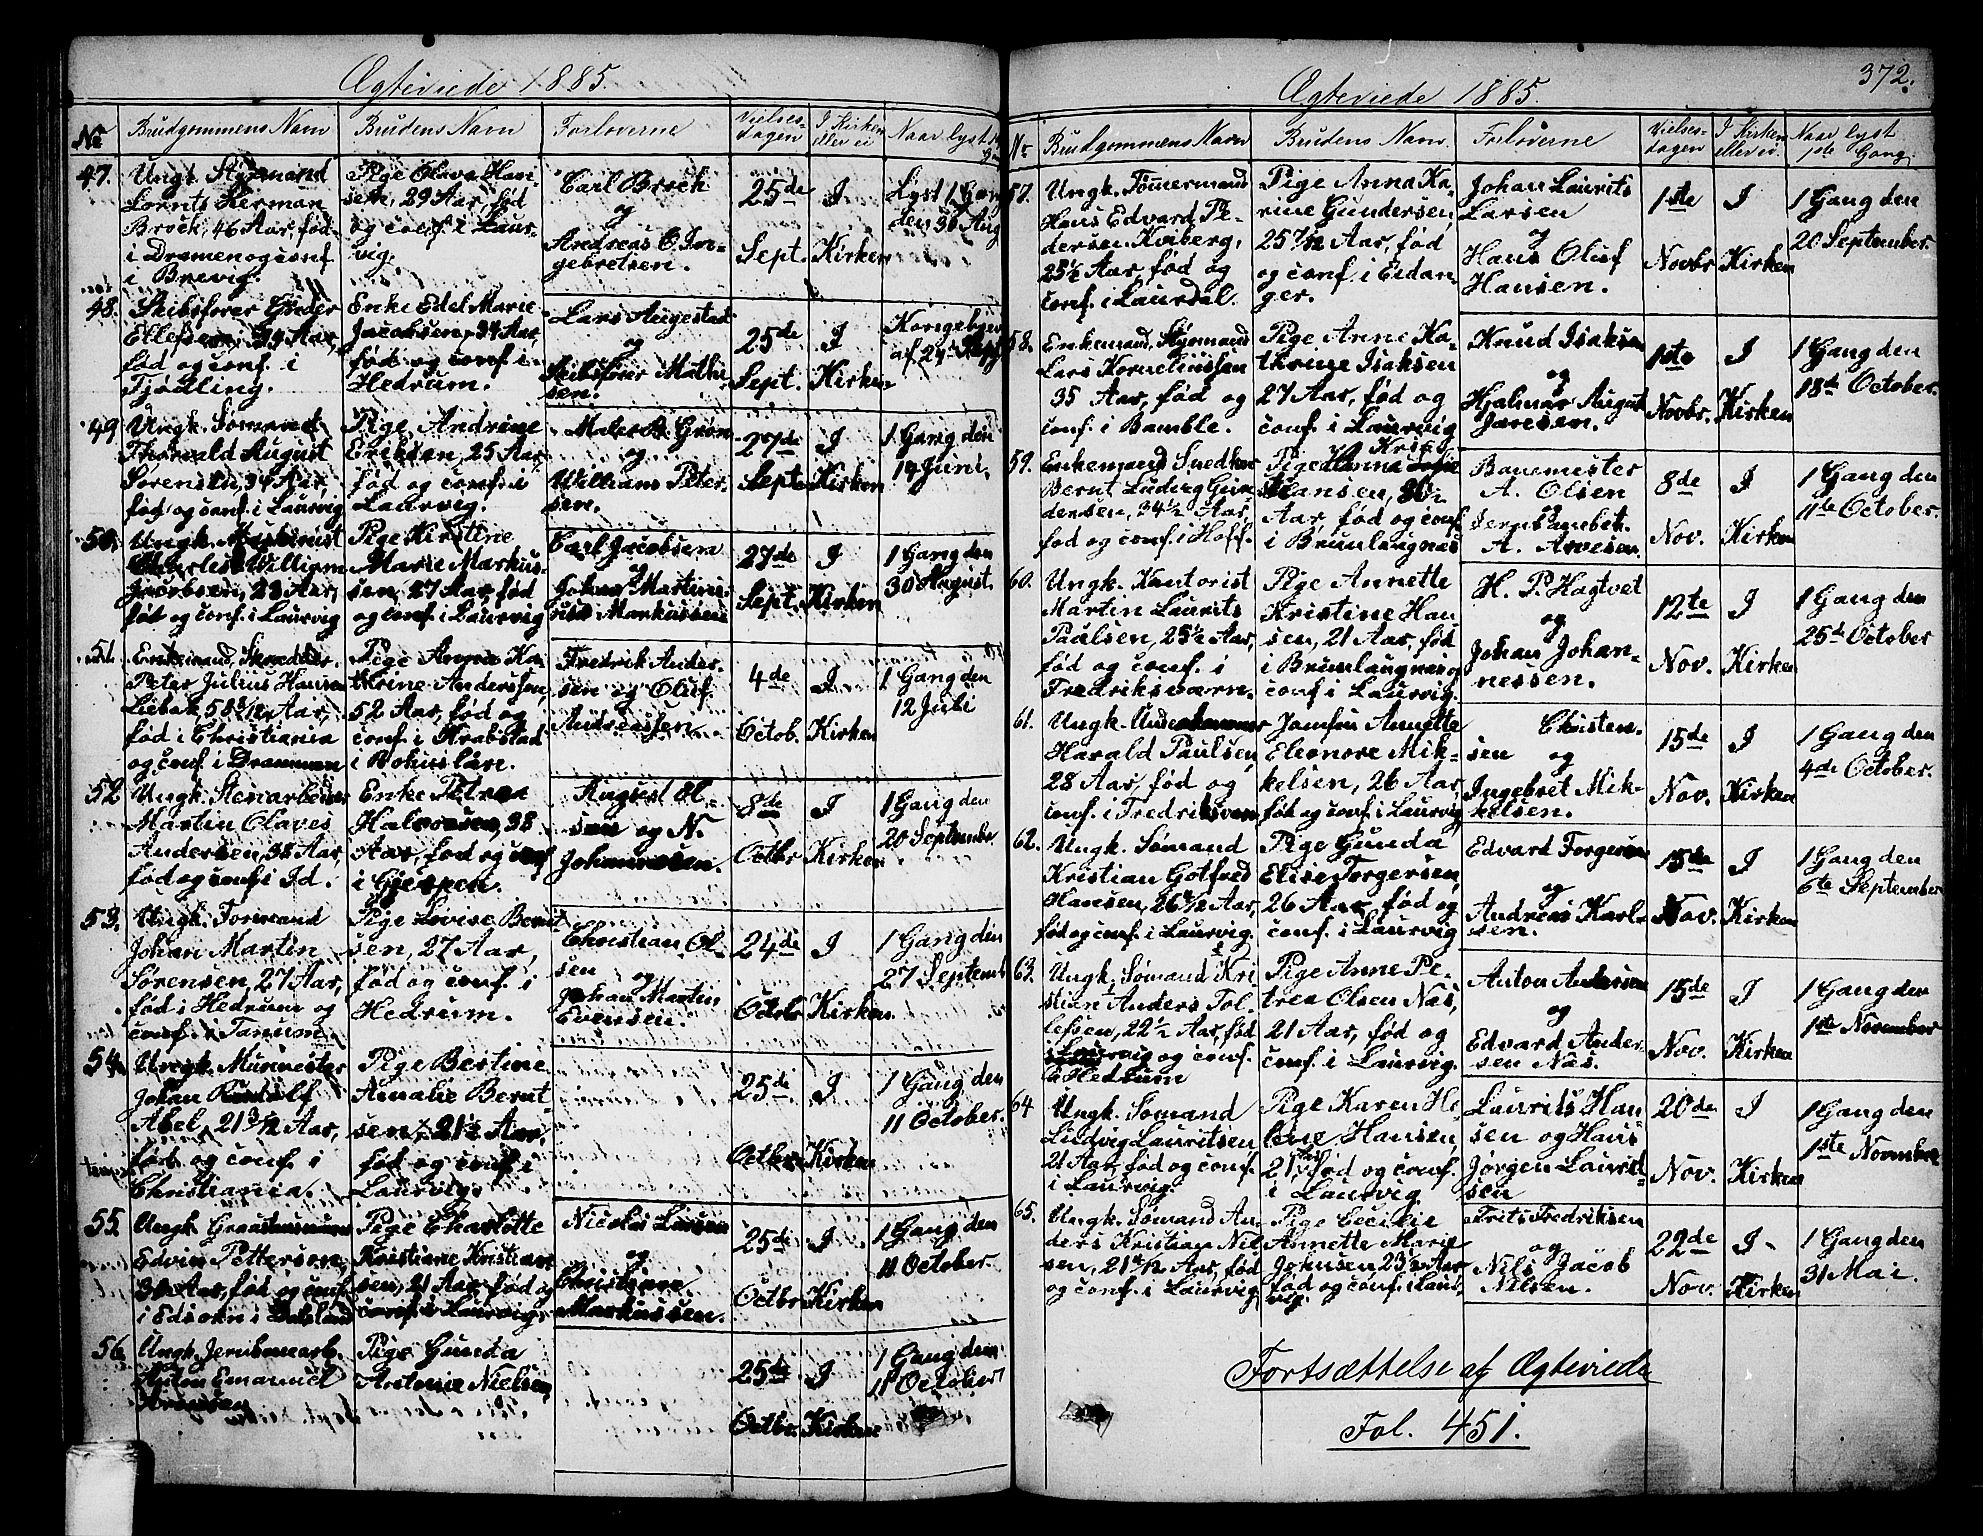 Ægteviede 1885.
No
Brudgommens Navn
Brudens Navn
Forloverne
Vielses-
dagen
I Kirken
eller ei
Naar lyst
47.
Ungk. Styrmand
Lorents Herman
Brock, 46 Aar, fød
i Dramen og conf.
i Brevig.
Pige Olava Han-
sen, 29 Aar, fød
og conf. i Laur-
vig.
Carl Brock
og
Andreas O. In-
gebretsen.
25de
Sept.
I
Kirken
Lyst 1 Gang
den 30 Aug
48.
Skibsfører Gunder
Ellefsen, 39 Aar,
fød og conf. i
Tjødling.
Enke Edel Marie
Jacobsen, 34 Aar,
fød og conf. i
Hedrum.
Lars Augestad
og
Skibsfører Mathi-
sen.
25de
Sept.
I
Kirken
Kongebrev
af 24de Sept
49
Ungk. Sømand
Thorvald August
Sørensen, 34 Aar,
fød og conf. i Laurvig
Pige Andrine
Eriksen, 25 Aar,
fød og conf. i
Laurvig.
Maler B. Grøn
og
William Peter-
sen.
27de
Sept.
I
Kirken
1 Gang den
14 Juni.
50.
Ungk. Maskinist
Charles William
Jacobsen, 28 Aar,
fød og conf. i Laurvig
Pige Kirstine
Marie Markus-
sen, 27 Aar, fød
og conf. i Laurvig
Carl Jacobsen
og
Johan Martini-
us Markussen
27de
Sept.
I
Kirken
1 Gang den
30 August.
51.
Enkemand, Skrædder
Peter Julius Hansen
Liebak, 58 Aar,
fød i Christiania
og conf. i Drammen
Pige Anna Ka-
thrine Anderssen,
52 Aar, fød og
conf. i Krabstad
i Bohuslän.
Fredrik Ander-
sen og Oluf
Andreassen
4de
Octob.
I
Kirken
1 Gang den
12 Juli
52
Ungk. Stenarbeider
Martin Olaves
Andersen, 38 Aar,
fød og conf. i Id.
Enke Petrea
Halvorsen, 38
Aar, fød og conf
i Gjerpen.
August Ol-
sen og N.
Johannesen.
8de
Octbr
I
Kirken
1 Gang den
20 September
53.
Ungk. Formand
Johan Martin
Sørensen, 27 Aar,
fød i Hedrum og
conf. i Tanum.
Pige Lovise Bernt
sen, 27 Aar,
fød og conf. i
Hedrum.
Christian Ol-
sen
og
Johan Martin
Evensen.
24de
Octbr
I
Kirken
1 Gang den
27 Septemb
54.
Ungk. Murmester
Johan Rudolf
Abel, 21 3/12 Aar,
født og conf. i
Christiania.
Pige Bertine
Amalie Bernt-
sen, 21½ Aar,
fød og conf. i
Laurvig.
25de
Octbr
I
Kirken
1 Gang den
11 October.
55.
Ungk.
Edvin Pettersen,
30 Aar, fød og conf.
i Edsokn i Dalsland
Pige Charlotte
Kristiane Kristian-
sen, 21 Aar, fød og
conf. i Laurvig.
Nicolai Larsen
og
Christian
Markussen.
25de
Octbr
I
Kirken
1 Gang den
11 October.
56
Ungk. Jernbanearb.
Anton Emanuel
Pige Gunda
Antonie Nielsen,
25de
Octbr.
I
Kirken
1 Gang den
11 October
Ægteviede 1885.
372.
No
Brudgommens Navn
Brudens Navn
Forloverne
Vielses-
dagen
I Kirken
eller ei.
Naar lyst
1ste Gang
57.
Ungk. Tømmermand
Hans Edvard Pe-
dersen Kviberg,
25½ Aar, fød og
conf. i Laurdal.
Pige Anna Ka-
rine Gundersen,
25 7/12 Aar, fød
og conf. i Eidan-
ger.
Johan Laurits
Larsen
og
Hans Oluf
Hansen.
1ste
Novbr
I
Kirken
1 Gang den
20 September.
58.
Enkemand, Styrmand
Lars Korneliussen
35 Aar, fød og
conf. i Bamble.
Pige Anne Ka-
thrine Isaksen
27 Aar, fød og
conf. i Laurvig
Knud Isaksen
og
Hjalmar August
Jansen.
1ste
Novbr.
I
Kirken
1 Gang den
18de October.
59.
Enkemand Snedker
Bernt Ludvig Gun-
dersen, 34½ Aar,
fød og conf. i Hoff.
Pige Hanna
Hansen,
Aar, fød og conf.
i Brunlaugnæs
Banemester
A. Olsen
og
A. Arvesen.
8de
Nov.
I
Kirken
1 Gang den
11te October.
60.
Ungk. Kontorist
Martin Laurits
Paulsen, 25½ Aar,
fød og conf. i
Fredriksværn.
Pige Annette
Kristine Han-
sen, 21 Aar, fød
i Brunlaugnæs og
conf. i Laurvig.
H. P. Hagtvet
og
Johan Johan-
nessen.
12te
Nov.
I
Kirken
1 Gang den
25de October
61.
Ungk.
Harald Paulsen,
28 Aar, fød og
conf. i Fredriksværn
Jomfru Annette
Eleonore Mik-
kelsen, 26 Aar,
fød og conf. i Laurvig
Christen-
sen og
Ingebret Mik-
kelsen.
15de
Nov.
I
Kirken
1 Gang den
4de October.
62.
Ungk. Sømand
Kristian Gotfred
Hansen, 26 Aar,
fød og conf. i Laurvig.
Pige Gunda
Elise Torgersen,
26 Aar, fød og
conf. i Laurvig
Edvard Torgersen
og
Andreas Karl-
sen.
15de
Nov.
I
Kirken
1 Gang den
6te September
63.
Ungk. Sømand Kri-
stian Anders Tol-
lefsen, 22½ Aar, fød
i Laurvig og conf.
i Hedrum
Pige Anne Pe-
trea Olsen Nas,
21 Aar, fød og
conf. i Laurvig.
Anton Andersen
og
Edvard Ander-
sen Nas.
15de
Nov.
I
Kirken
1 Gang den
1ste November
64
Ungk. Sømand
Ludvig Lauritsen
21 Aar, fød og conf.
i Laurvig.
Pige Karen He-
lene Hansen,
21 Aar, fød og conf.
i Laurvig
Laurits Han-
sen og Hans
Jørgen Laurit-
sen
20de
Nov.
I
Kirken
1 Gang den
1ste November
65.
Ungk. Sømand An-
ders Kristian Nil-
sen, 21 Aar, fød
og conf. i Laurvig
Pige Cecilie
Annette Marie
Johnsen 23½ Aar
fød og conf. i Laur-
vig.
Frits Fredriksen
og
Nils Jacob
Nilsen.
22de
Nov.
I
Kirken
1 Gang den
31 Mai.
Fortsættelse af Ægteviede
Fol. 451.